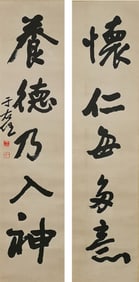 懷仁每多
養德乃入神
于右任